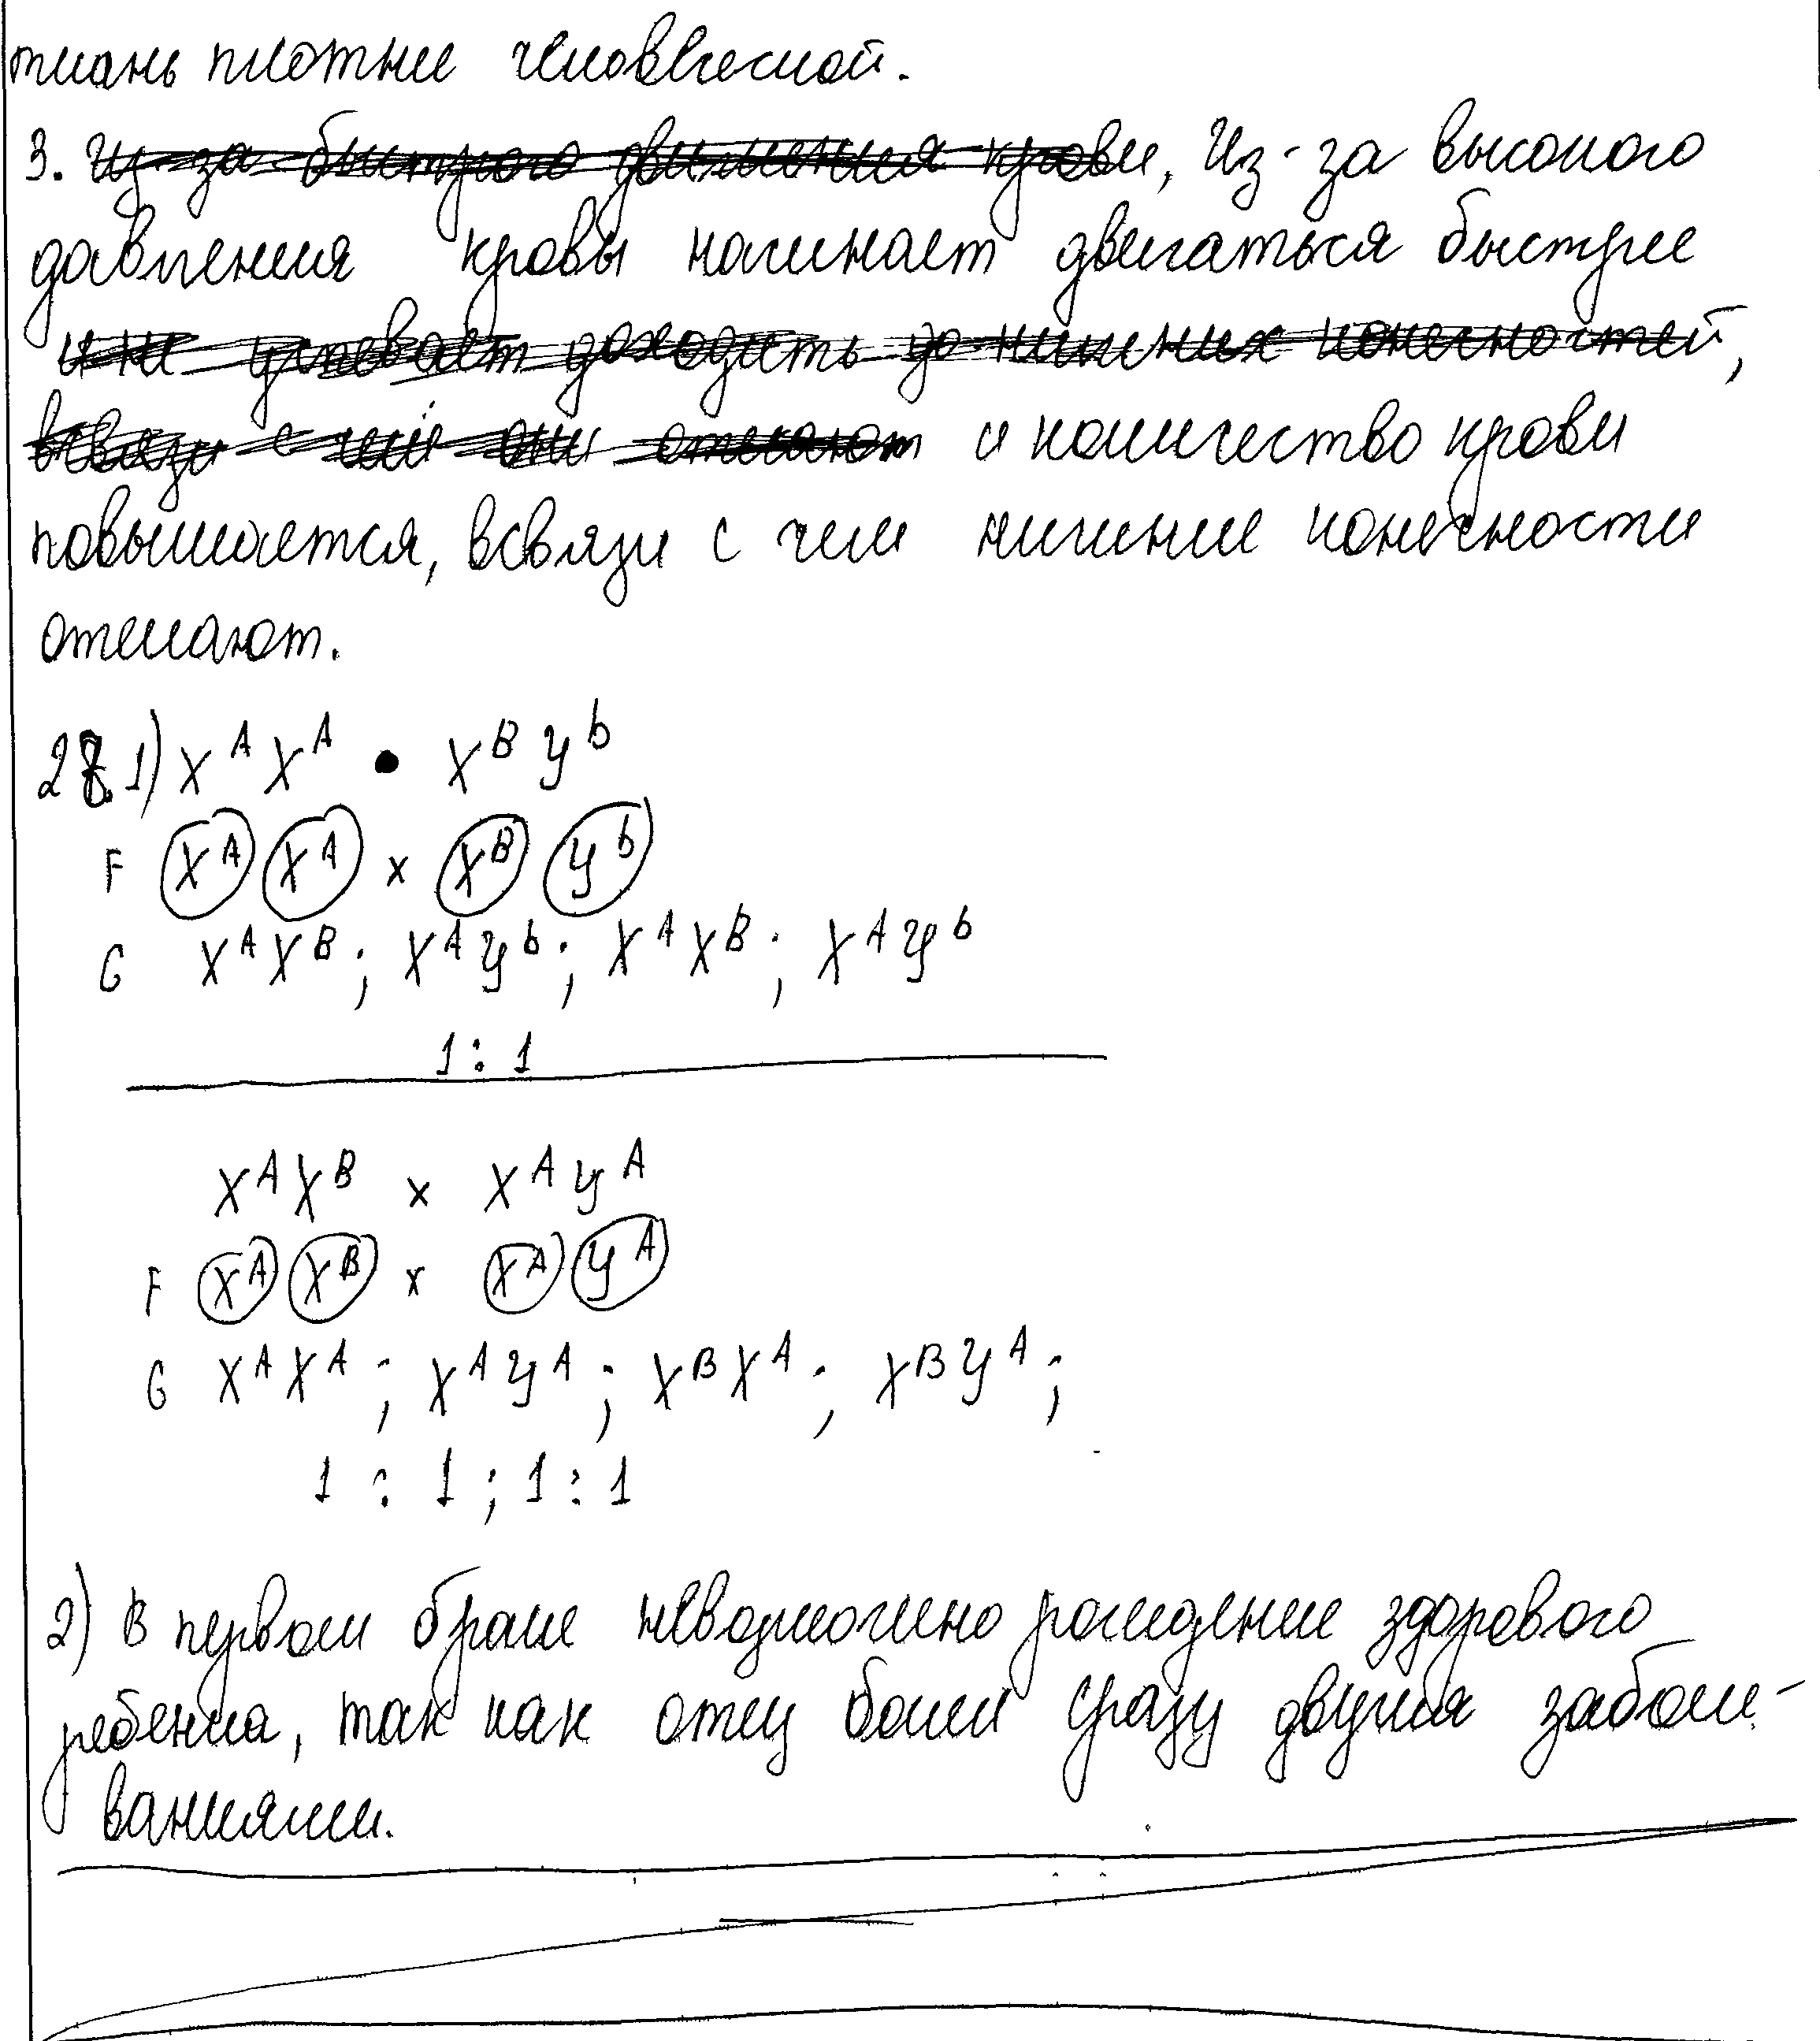 ткань плотнее человеческой.
3. Из-за быстрого движения крови, Из-за высокого
давления кровы начинает двигаться быстрее
и не успевает доходить до нижних конечностей,
всвязи с чем они отекают и количество крови
повышается, всвязи с чем нижние конечности
отекают.
28. 1) X^A X^A • X^B У^b
F X^A X^A x X^B У^b
G X^A X^B ; X^A У^b ; X^A X^B ; X^A У^b
1 : 1
X^A X^B x X^A У^A
F X^A X^B x X^A У^A
G X^A X^A ; X^A У^A ; X^B X^A ; X^B У^A ;
1 : 1 ; 1 : 1
2) В первом браке невозможно рождение здорового
ребенка, так как отец болен сразу двумя заболе-
ваниями.